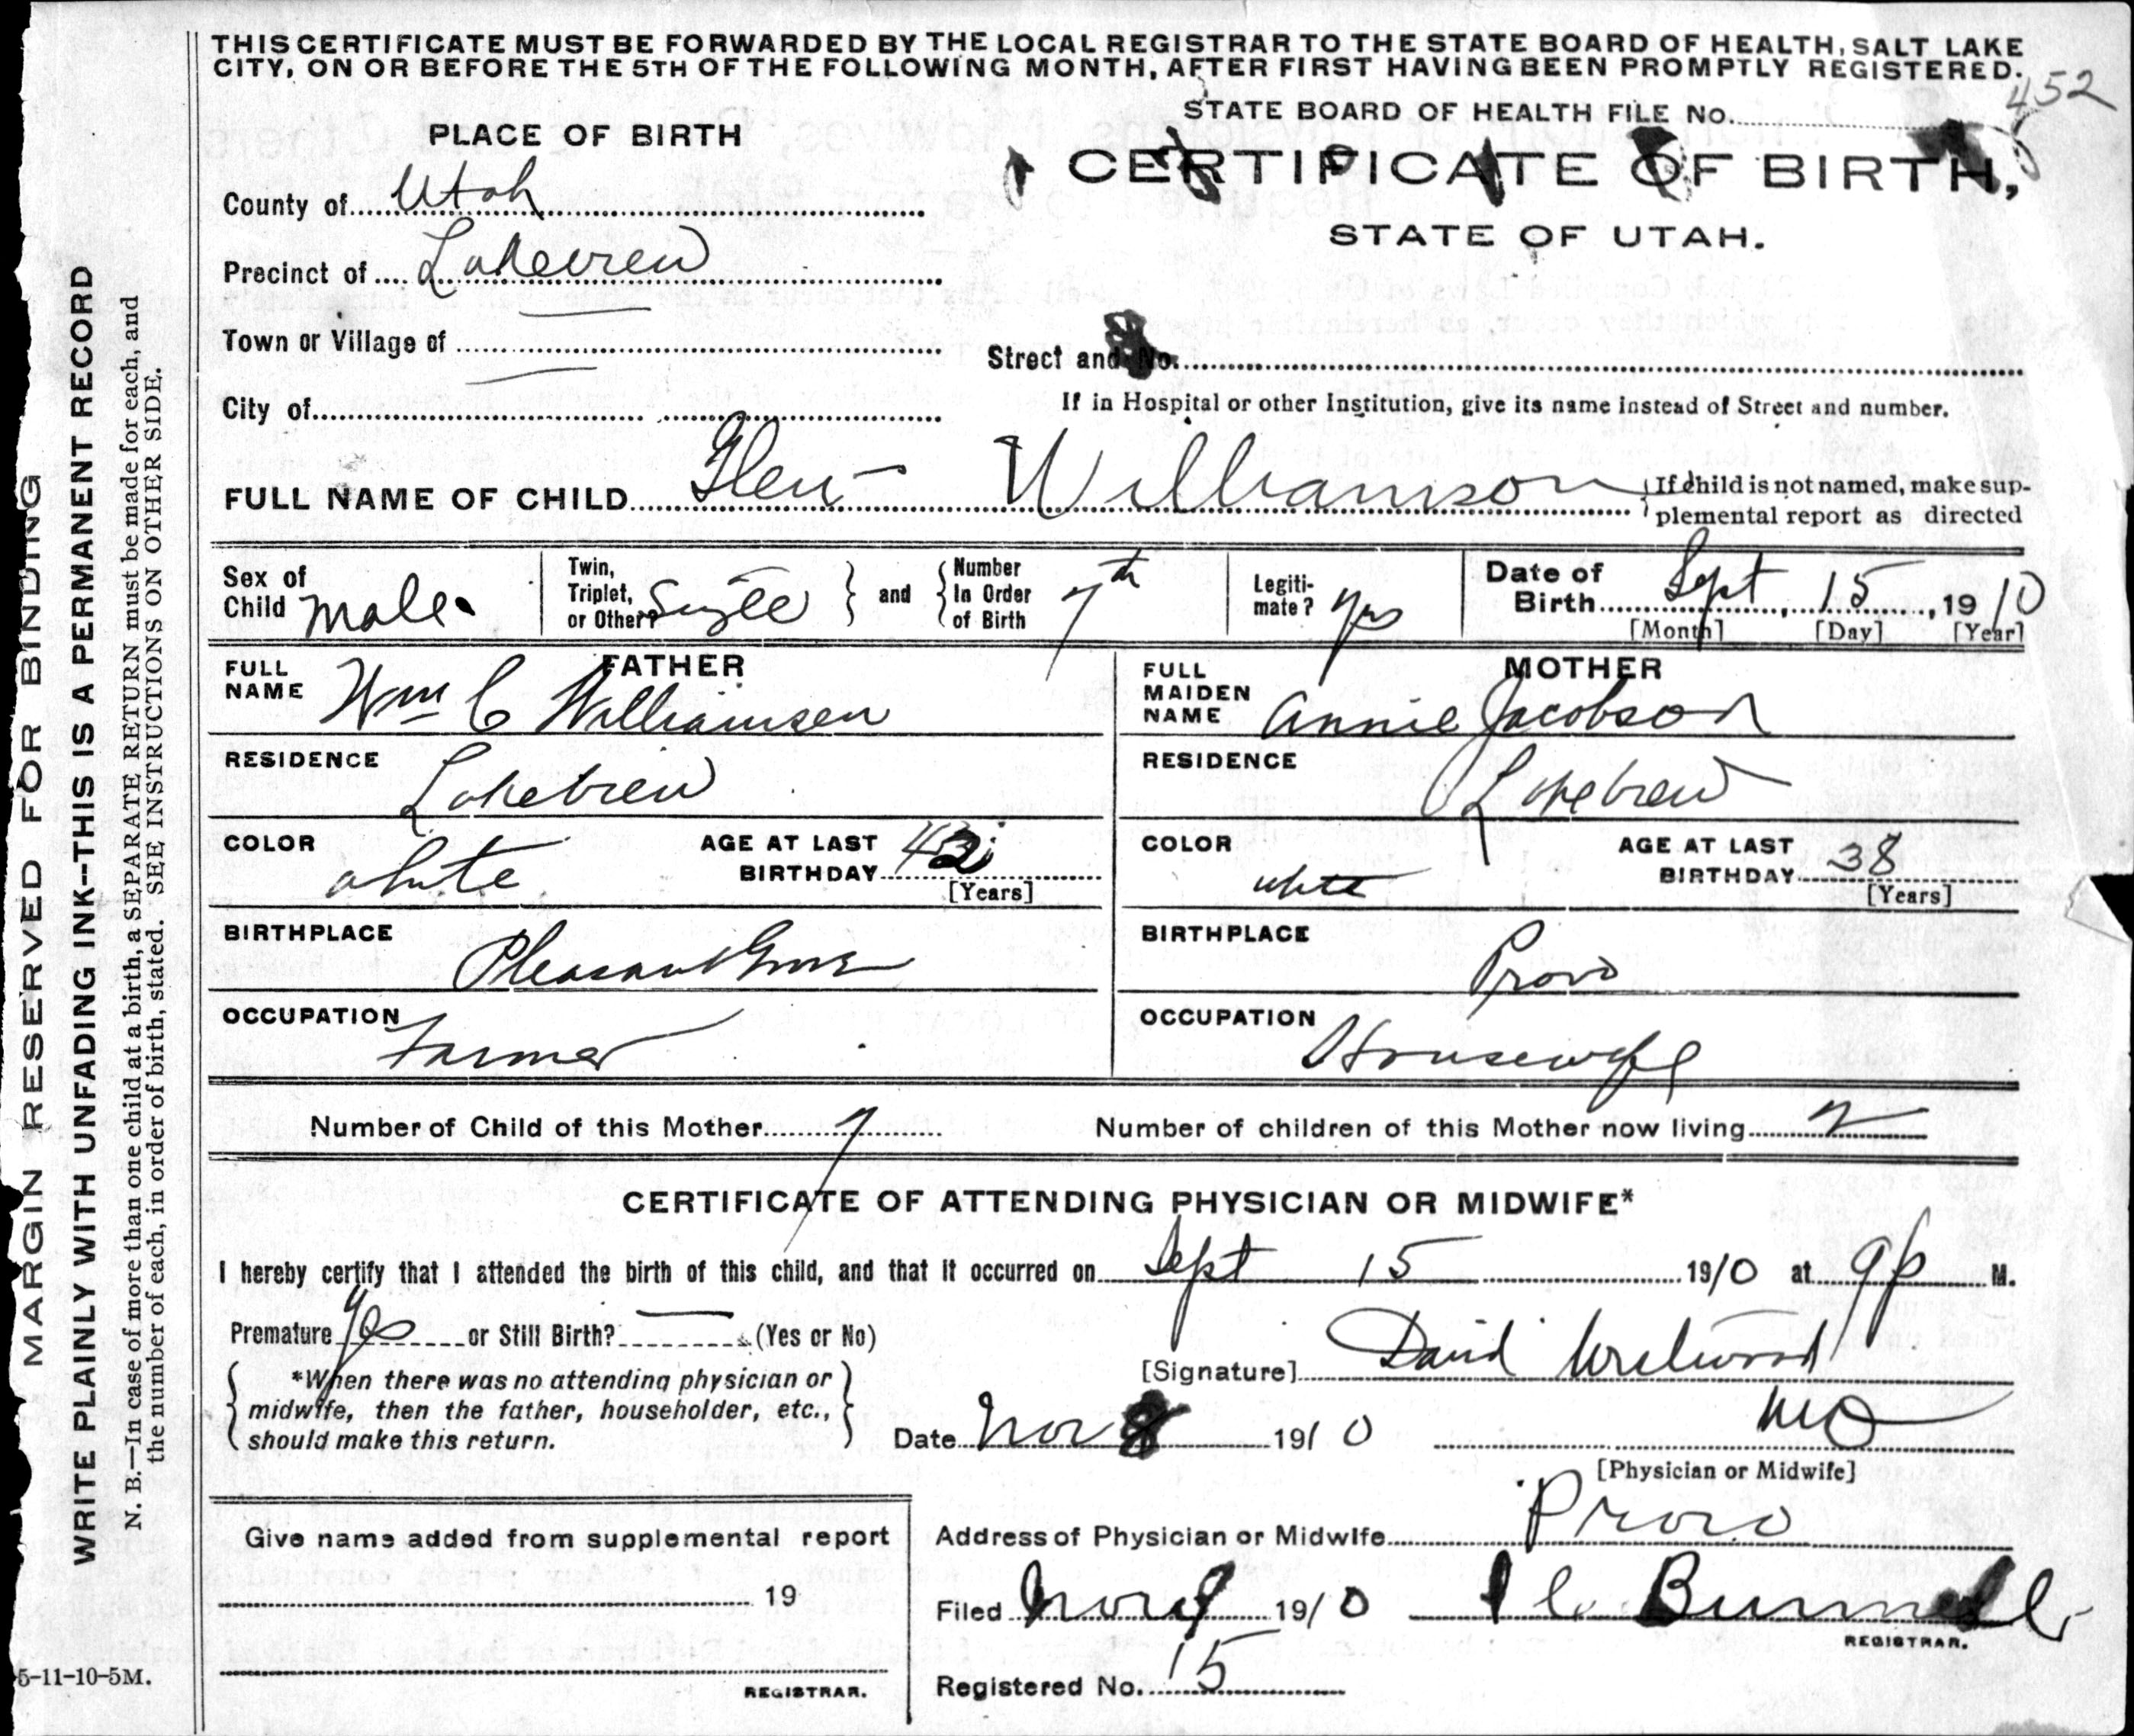 THIS CERTIFICATE MUST BE FORWARDED BY THE LOCAL REGISTRAR TO THE STATE BOARD OF HEALTH, SALT LAKE
CITY, ON OR BEFORE THE 5TH OF THE FOLLOWING MONTH, AFTER FIRST HAVING BEEN PROMPTLY REGISTERED.
452
STATE BOARD OF HEALTH FILE No.
PLACE OF BIRTH
CERTIFICATE OF BIRTH,
STATE OF UTAH.
County of Utah
Precinct of Lakeview
Town or Village of
Street and No.
City of
If in Hospital or other Institution, give its name instead of Street and number.
FULL NAME OF CHILD Glen Williamson
If child is not named, make sup-
plemental report as directed
Sex of Child Male
Twin, Triplet, or Other? Single and Number In Order of Birth 7th
Legiti-mate? yes
Date of Birth Sept, 15, 1910
[Month] [Day] [Year]
FATHER
FULL NAME Wm C Williamsen
RESIDENCE Lakeview
COLOR white AGE AT LAST BIRTHDAY
[Years]
BIRTHPLACE Pleasant Grove
OCCUPATION Farmer
MOTHER
FULL MAIDEN NAME Annie Jacobson
RESIDENCE Lakeview
COLOR white AGE AT LAST BIRTHDAY 38
[Years]
BIRTHPLACE Provo
OCCUPATION Housewife
Number of Child of this Mother 7 Number of children of this Mother now living 7
CERTIFICATE OF ATTENDING PHYSICIAN OR MIDWIFE*
I hereby certify that I attended the birth of this child, and that it occurred on Sept 15 1910 at 9 p M.
Premature Yes or Still Birth? — (Yes or No)
*When there was no attending physician or
midwife, then the father, householder, etc.,
should make this return.
[Signature] David Westwood
MD
Date Nov 8 1910
[Physician or Midwife]
Give name added from supplemental report
19
REGISTRAR.
Address of Physician or Midwife Provo
Filed Nov 9 1910 Bunnell
REGISTRAR.
Registered No. 15
MARGIN RESERVED FOR BINDING
WRITE PLAINLY WITH UNFADING INK--THIS IS A PERMANENT RECORD
N. B.—In case of more than one child at a birth, a SEPARATE RETURN must be made for each, and
the number of each, in order of birth, stated. SEE INSTRUCTIONS ON OTHER SIDE.
5-11-10-5M.